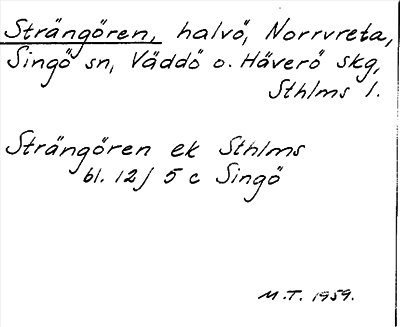 Strängören, halvö, Norrvreta,
Singö sn, Väddö o. Häverö skg,
Sthlms l.
Strängören ek Sthlms
bl. 12j 5 c Singö
M.T. 1959.